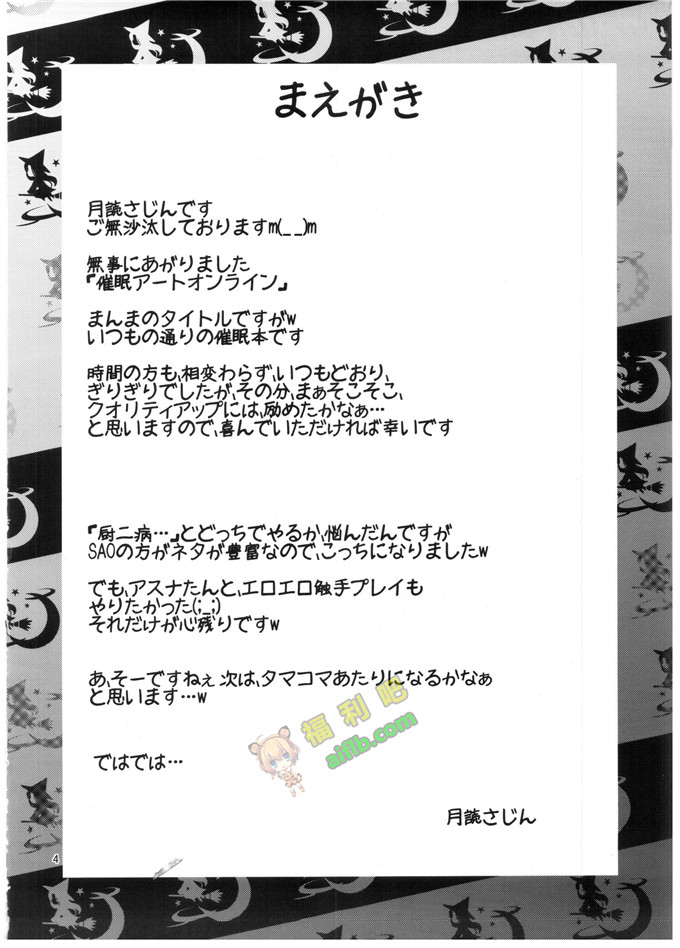 まえがき
月読さじんです
ご無沙汰しておりますm(_ _)m
無事にあがりました
『催眠アートオンライン』
まんまのタイトルですがw
いつもの通りの催眠本です
時間の方も、相変わらず、いつもどおり、
ぎりぎりでしたが、その分、まぁそこそこ、
クオリティアップには、励めたかなぁ…
と思いますので、喜んでいただければ幸いです
『厨二病…』とどっちでやるか、悩んだんですが
SAOの方がネタが豊富なので、こっちになりましたw
でも、アスナたんと、エロエロ触手プレイも
やりたかった(;_;)
それだけが心残りですw
あ、そーですねぇ 次は、タマコマあたりになるかなぁ
と思います…w
福利吧
aifib.com
ではでは…
月読さじん
4